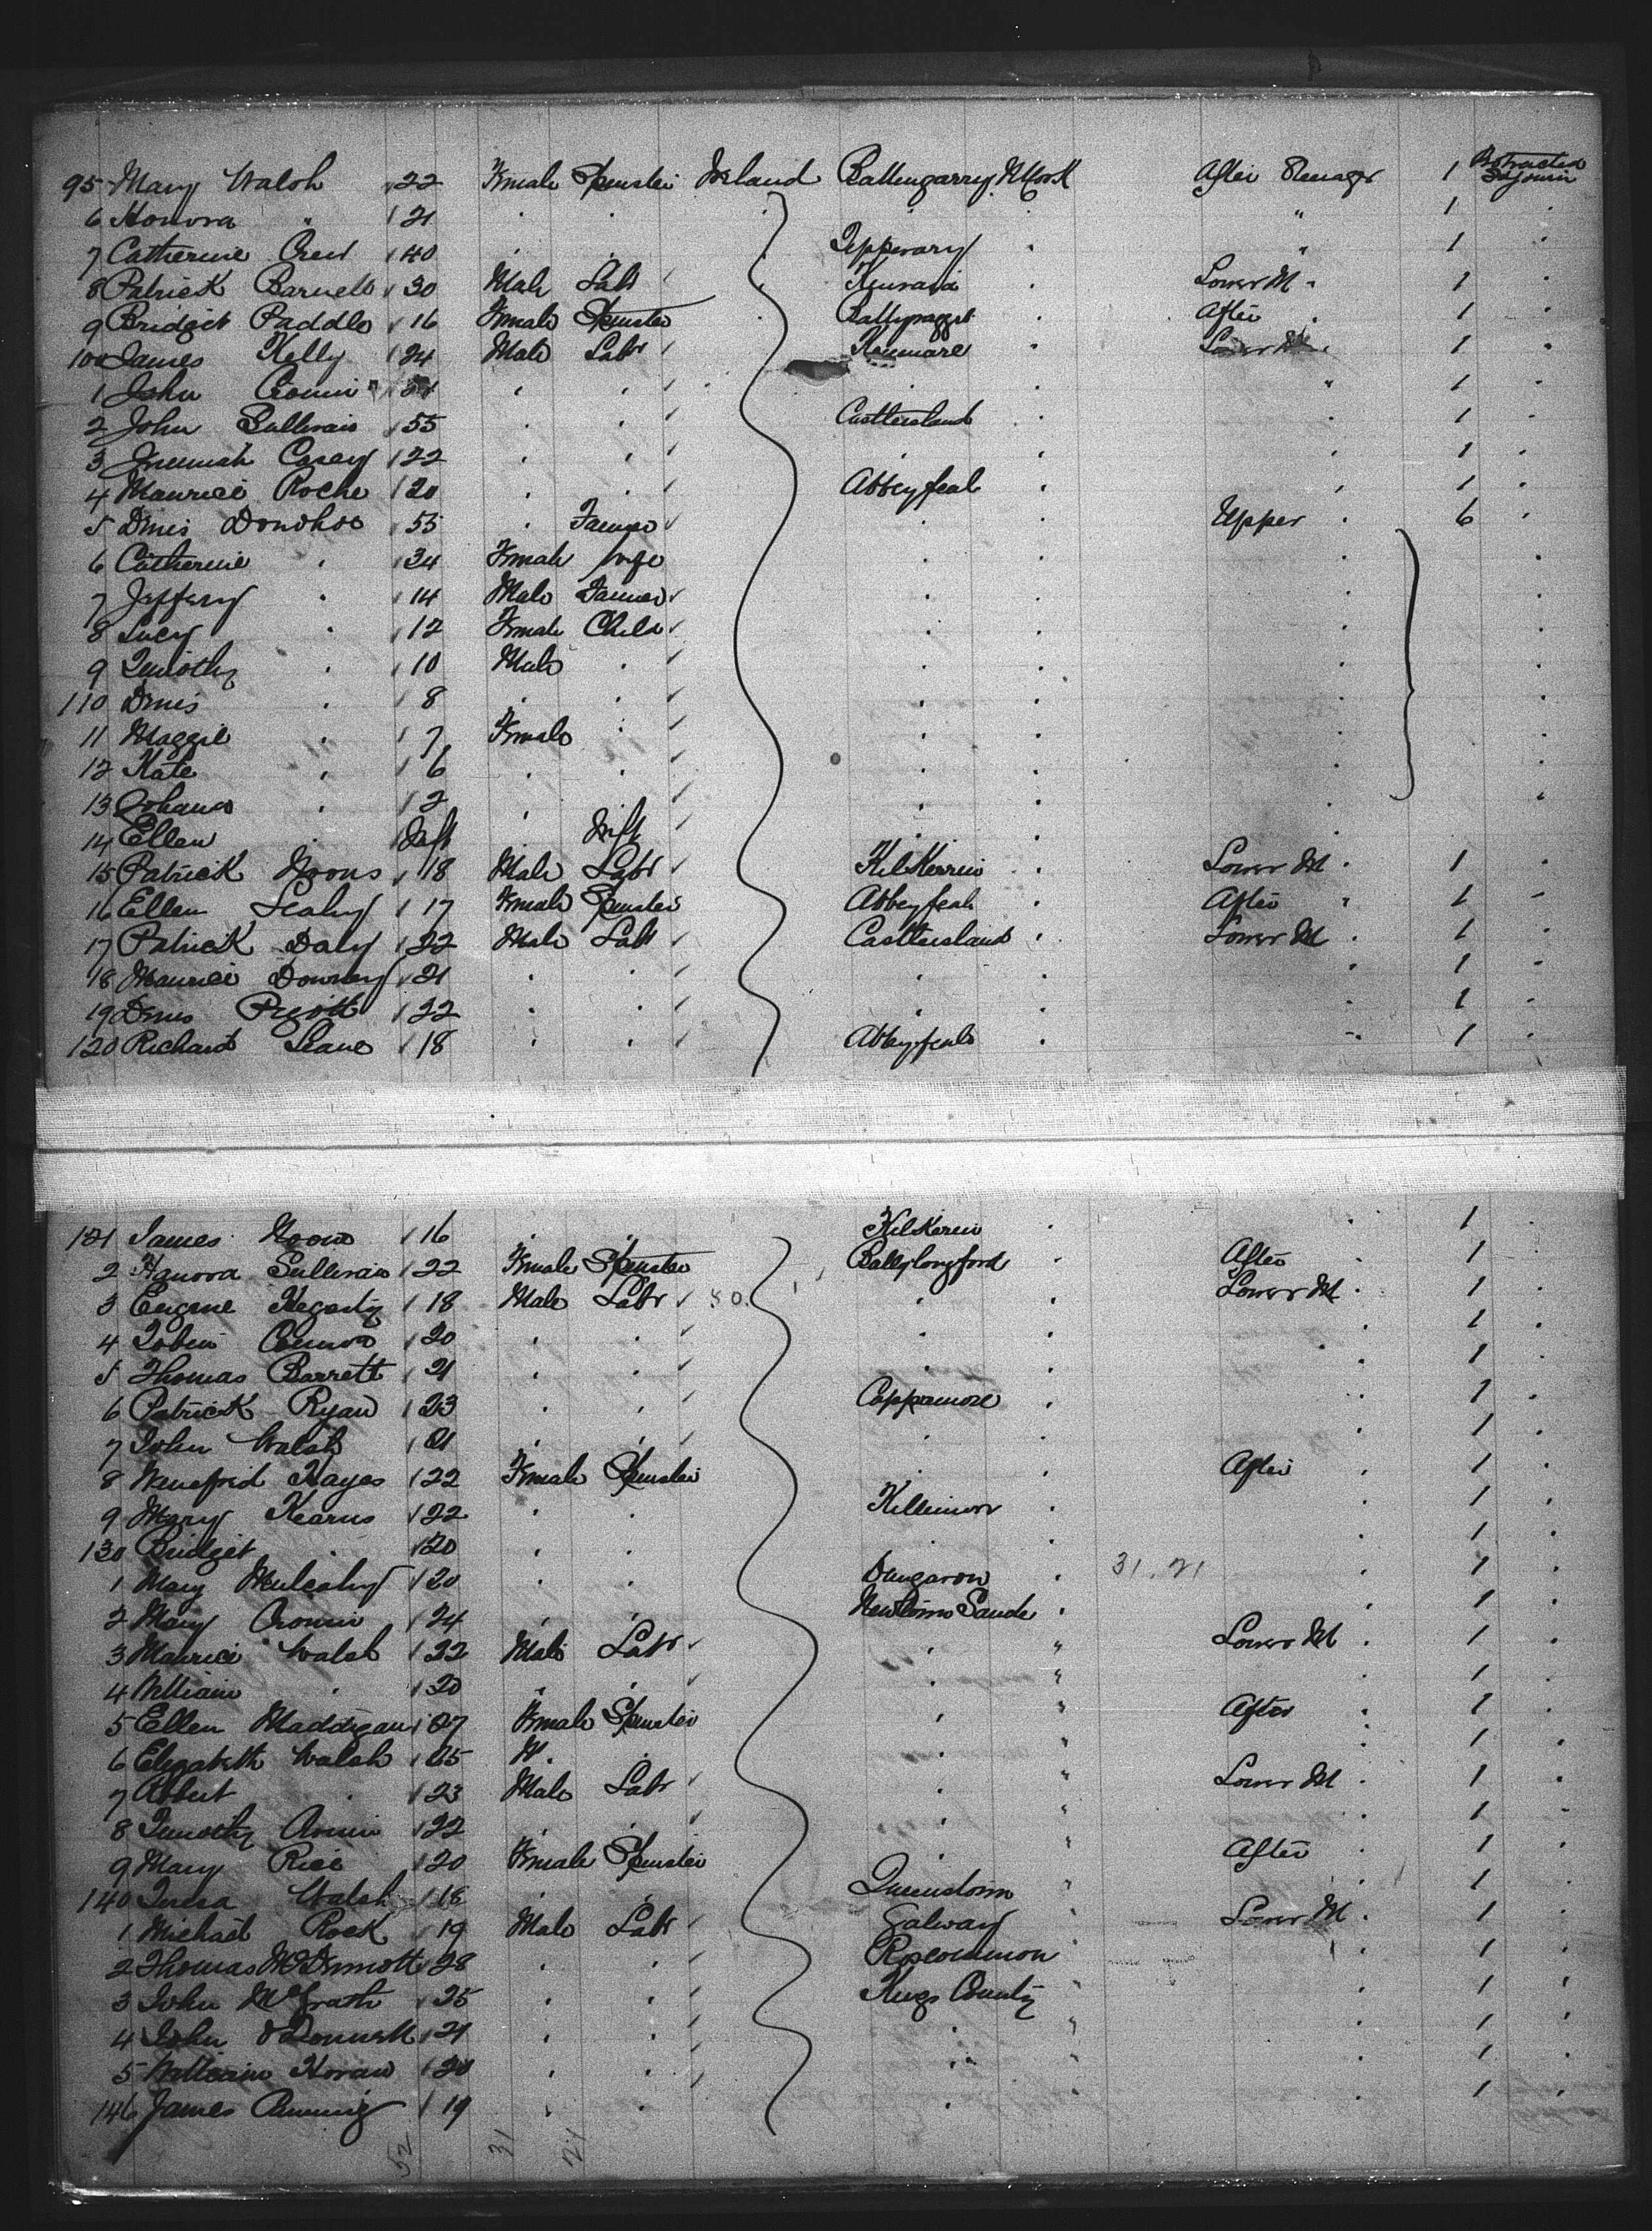 95 Mary Walsh 22 Female Spinster Ireland Ballingarry N York After Steerage 1 Protracted Sojourn
6 Honora " 21 . . . . . " 1 .
7 Catherine 40 . . . Tipperary . " 1 .
8 Patrick 30 Male Labr . . Lower M " 1 .
9 Bridget 16 Female Spinster . After . 1 .
100 James Kelly 24 Male Labr Kenmare . Lower M . 1 .
1 John Cronin . . . . " 1 .
2 John Sullivan 55 . . Castleisland . . 1 .
3 Jeremiah Casey 22 . . . . . 1 .
4 Maurice Roche 20 . . Abbeyfeal . . 1 .
5 Denis Donohoe 55 . Farmer . . Upper . 6 .
6 Catherine . 34 Female Wife . . . .
7 Jeffery . 14 Male Farmer . . . .
8 Lucy . 12 Female Child . . . .
9 Timothy . 10 Male . . . . .
110 Denis . 8 . . . . . .
11 Maggie . 7 Female . . . . .
12 Kate . 6 . . . . . .
13 Johana . 2 . . . . . .
14 Ellen . Inft . Inft . . .
15 Patrick 18 Male Labr . Lower M . 1 .
16 Ellen Leahy 17 Female Spinster Abbeyfeale . After " 1 .
17 Patrick Daly 22 Male Labr Castleisland . Lower M . 1 .
18 Maurice Downey 21 . . . . . 1 .
19 Denis Pigott 22 . . . . . 1 .
120 Richard Leane 18 . . Abbeyfeale . " 1 .
121 James 16 . . . . 1 .
2 Hanora Sullivan 22 Female Spinster Ballylongford . After . 1 .
3 Eugene Hegarty 18 Male Labr . . Lower M . 1 .
4 Connor 20 . . . . . 1 .
5 Thomas Barrett 21 . . . . . 1 .
6 Patrick Ryan 23 . . Cappamore . . 1 .
7 John Walsh 21 . . . . . 1 .
8 Winefrid Hayes 22 Female Spinster . . After . 1 .
9 Mary Kearns 22 . . Killimor . . 1 .
130 Bridget . 20 . . . . . 1 .
1 Mary Mulcahy 20 . . Dungarvon . 31.21 . 1 .
2 Mary Cronin 24 . . Newtown Sands . . 1 .
3 Maurice Walsh 22 Male Labr . " Lower M . 1 .
4 William . 20 . . . " . 1 .
5 Ellen Maddigan 27 Female Spinster . " After . 1 .
6 Elizabeth Walsh 25 . . " . 1 .
7 Robert . 23 Male Labr . " Lower M . 1 .
8 Timothy Cronin 22 . . . " . 1 .
9 Mary Rice 20 Female Spinster . " After . 1 .
140 Walsh 18 . . Queenstown " . 1 .
1 Michael Rock 19 Male Labr Galway " Lower M . 1 .
2 Thomas McDermott 28 . . Roscommon " . 1 .
3 John McGrath 25 . . Kings County " . 1 .
4 John O'Donnell 21 . . . " . 1 .
5 William Horan 20 . . . " . 1 .
146 James 19 . . . " . 1 .
52 31 21